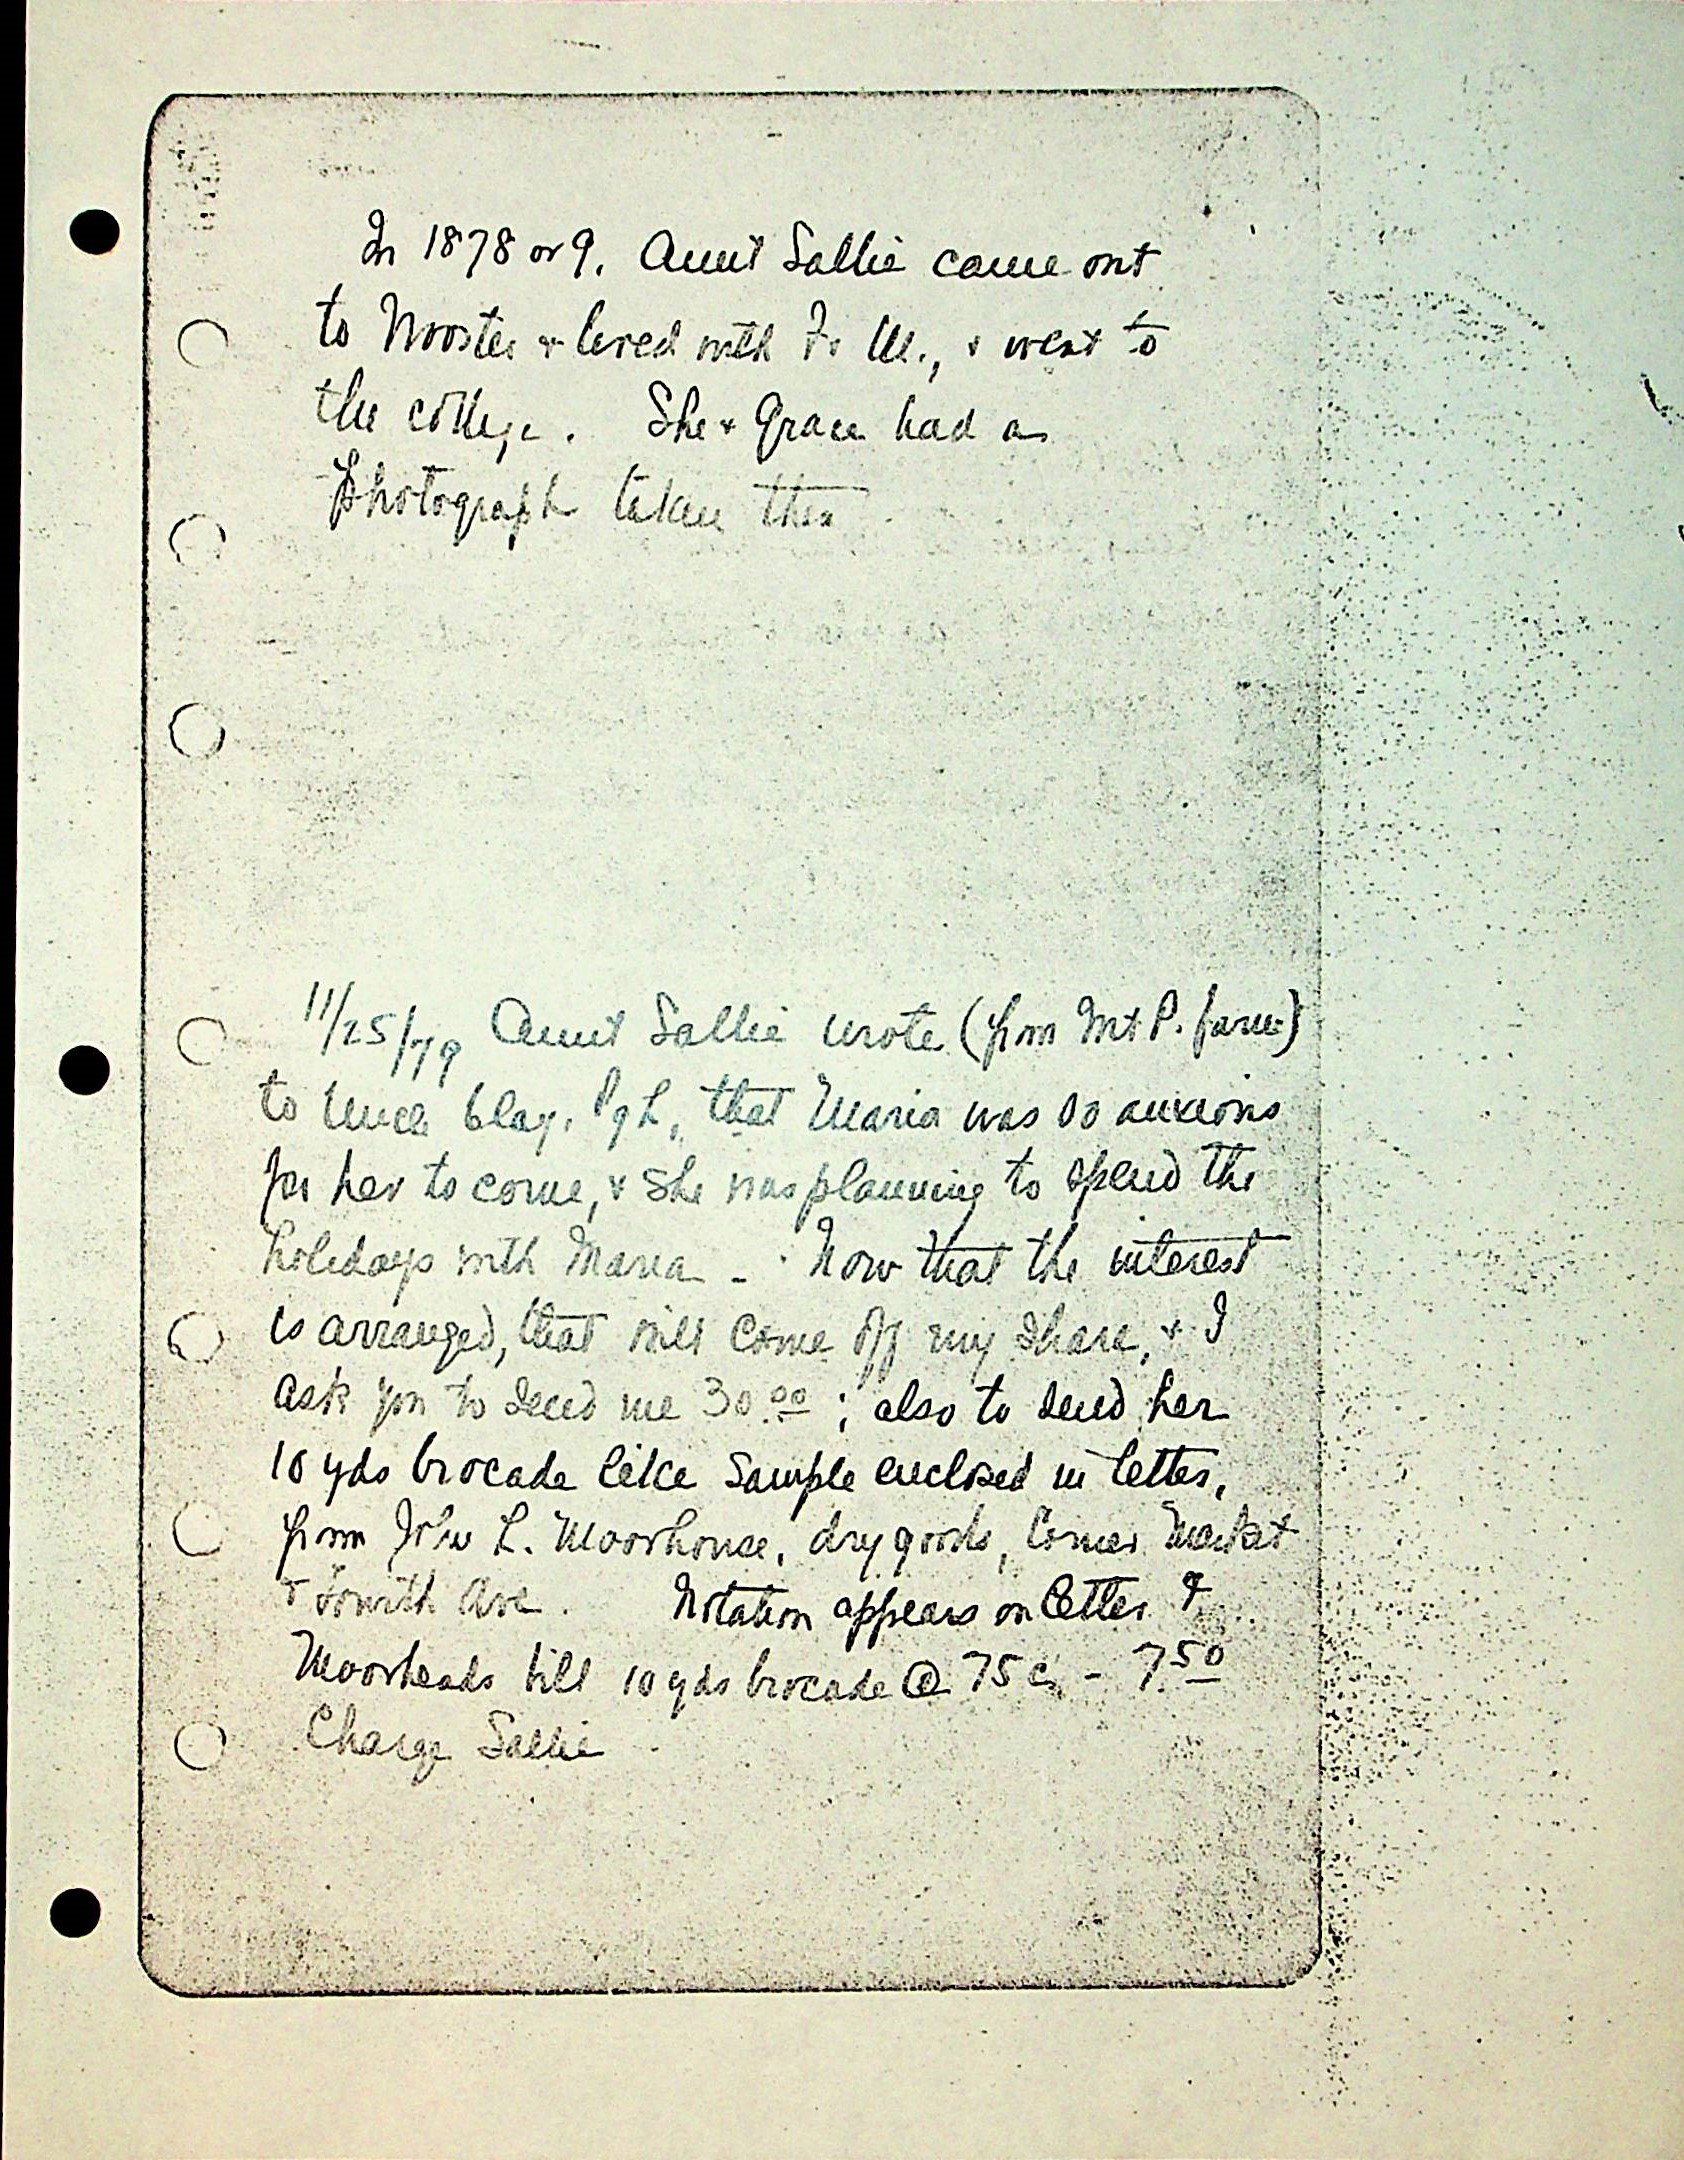 In 1878 or 9. Aunt Sallie came out
to Wooster & lived with Fr M., & went to
the college. She & Grace had a
photograph taken then
11/25/79 Aunt Sallie wrote (from Mt P. farm)
to Uncle Clay, Pgh, that Maria was so anxious
for her to come, & she was planning to spend the
holidays with Maria - Now that the interest
is arranged, that will come off my share, & I
ask you to send me 30.00 ; also to send her
10 yds brocade like sample enclosed in letter,
from John L. Moorhouse, dry goods, Corner Market
& Fourth Ave. Notation appears on letter &
Moorheads bill 10 yds brocade @ 75c - 7.50
Charge Sallie